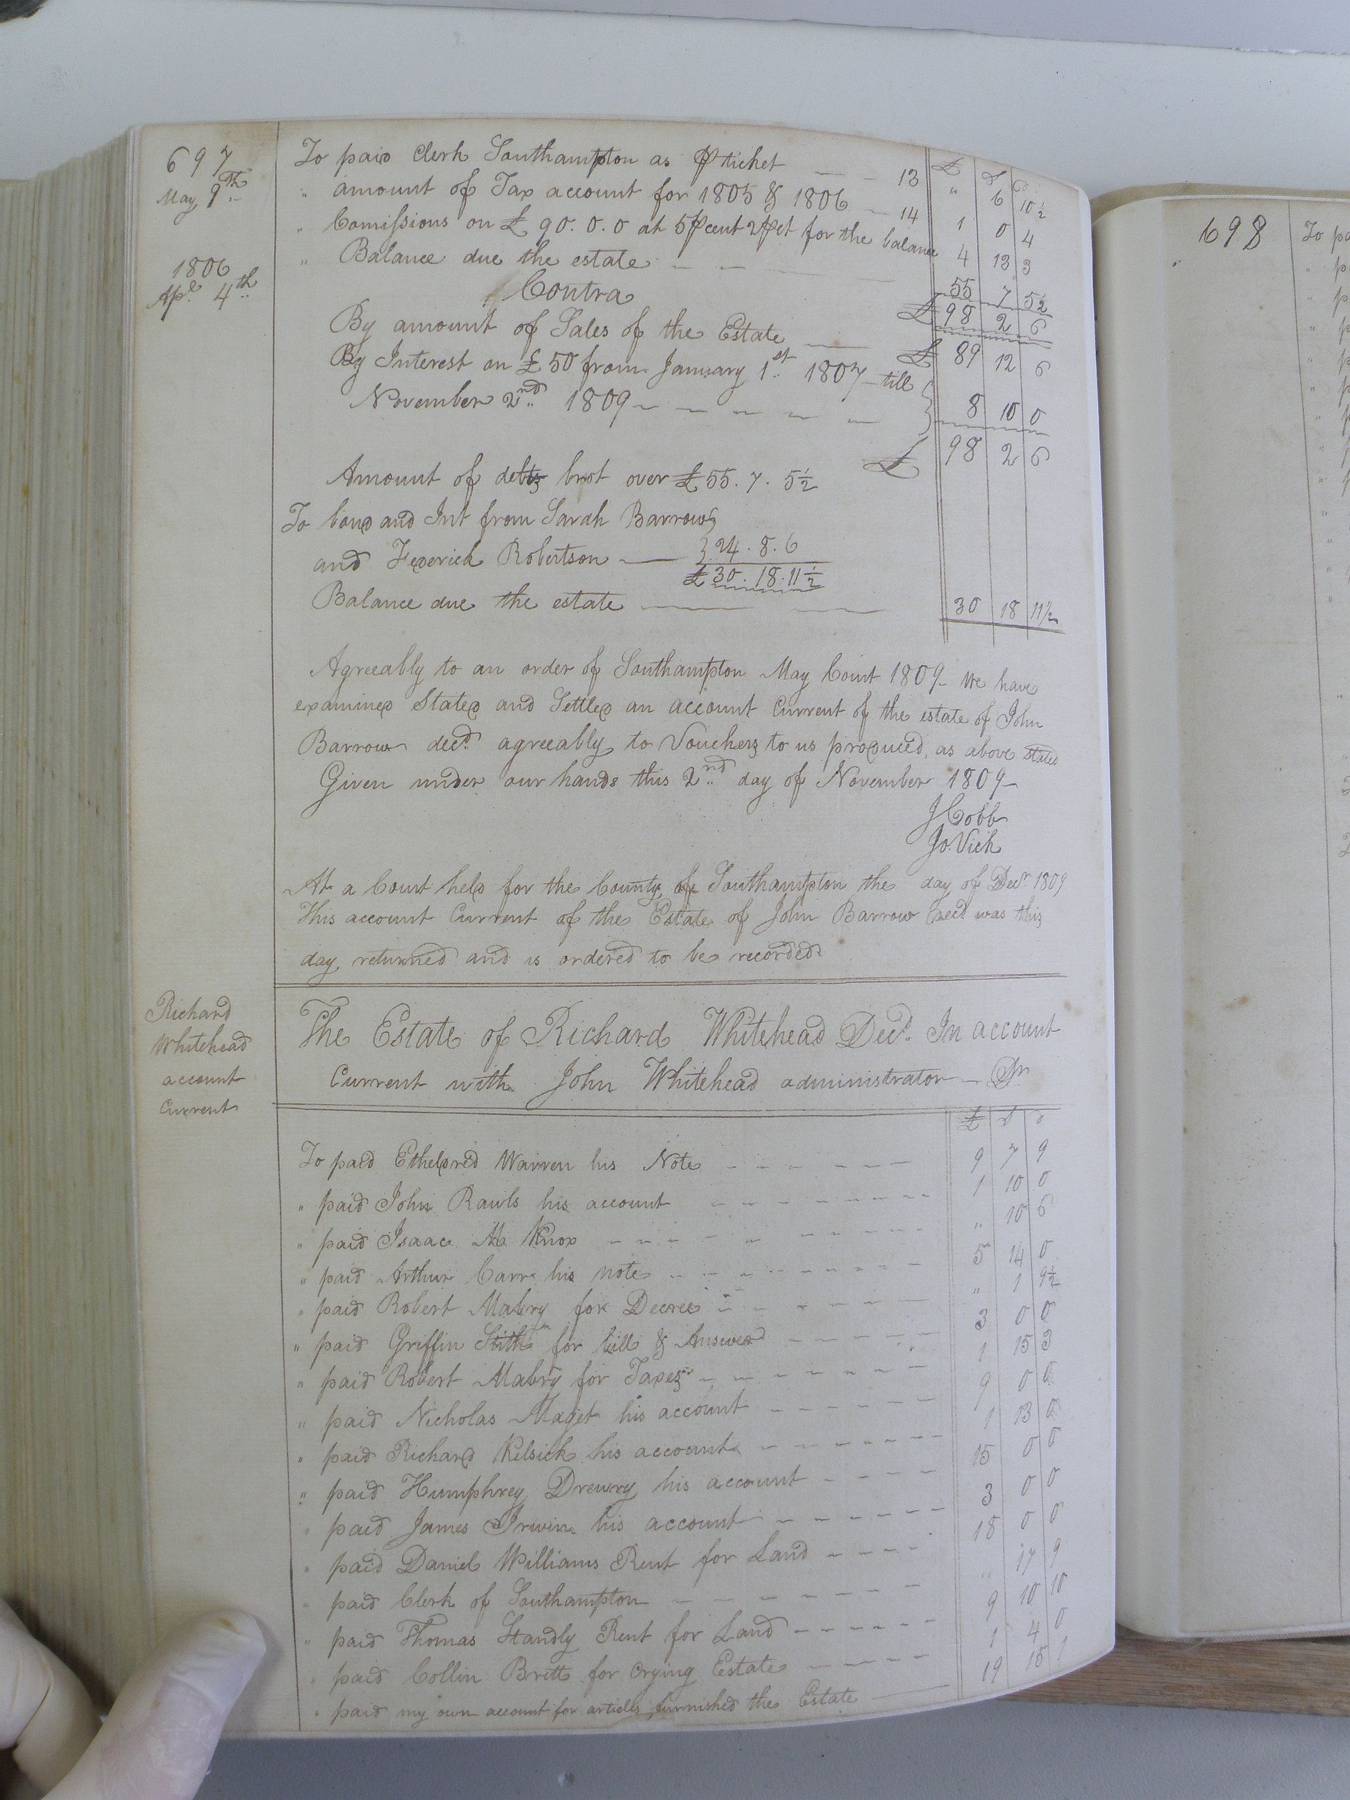 697
May 9th
To paid Clerk Southampton as pr ticket 13 " 6 10½
" amount of Tax account for 1805 & 1806 14 1 0 4
" Comissions on £90.0.0 at 5 pcent 2 pct for the balance 4 13 3
1806
Apl 4th
" Balance due the estate 55 7 5½
£ 98 2 6
Contra
By amount of Sales of the Estate £ 89 12 6
By Interest on £50 from January 1st 1807 till
November 2nd 1809 8 10 0
£ 98 2 6
Amount of debts brot over £55.7.5½
To bond and Int from Sarah Barrow
and Federick Robertson 24.8.6
£30.18.11½
Balance due the estate 30 18 11½
Agreeably to an order of Southampton May Court 1809 We have
examined Stated and Settled an account Current of the estate of John
Barrow decd agreeably to Vouchers to us produced, as above stated
Given under our hands this 2nd day of November 1809
J Cobb
Jo. Vick
At a Court held for the County of Southampton the day of Decr 1809
This account Current of the Estate of John Barrow decd was this
day returned and is ordered to be recorded
Richard
Whitehead
account
Current
The Estate of Richard Whitehead Decd. In account
Current with John Whitehead administrator Dr
£ s d
To paid Etheldred Warren his Note 9 7 9
" paid John Rawls his account 1 10 0
" paid Isaac M Knox " 10 6
" paid Arthur Carr his note 5 14 0
" paid Robert Mabry for Decree " 1 9½
" paid Griffin Stith for bill & Answer 3 0 0
" paid Robert Mabry for Taxes 1 15 3
" paid Nicholas Maget his account 9 0 0
" paid Richard Kelsick his account 1 13 6
" paid Humphrey Drewry his account 15 0 0
" paid James Irwin his account 3 0 0
" paid Daniel Williams Rent for Land 15 0 0
" paid Clerk of Southampton " 17 9
" paid Thomas Handly Rent for Land 9 10 10
" paid Collin Britt for crying Estate 1 4 0
" paid my own account for articles furnished the Estate 19 15
698
To pa